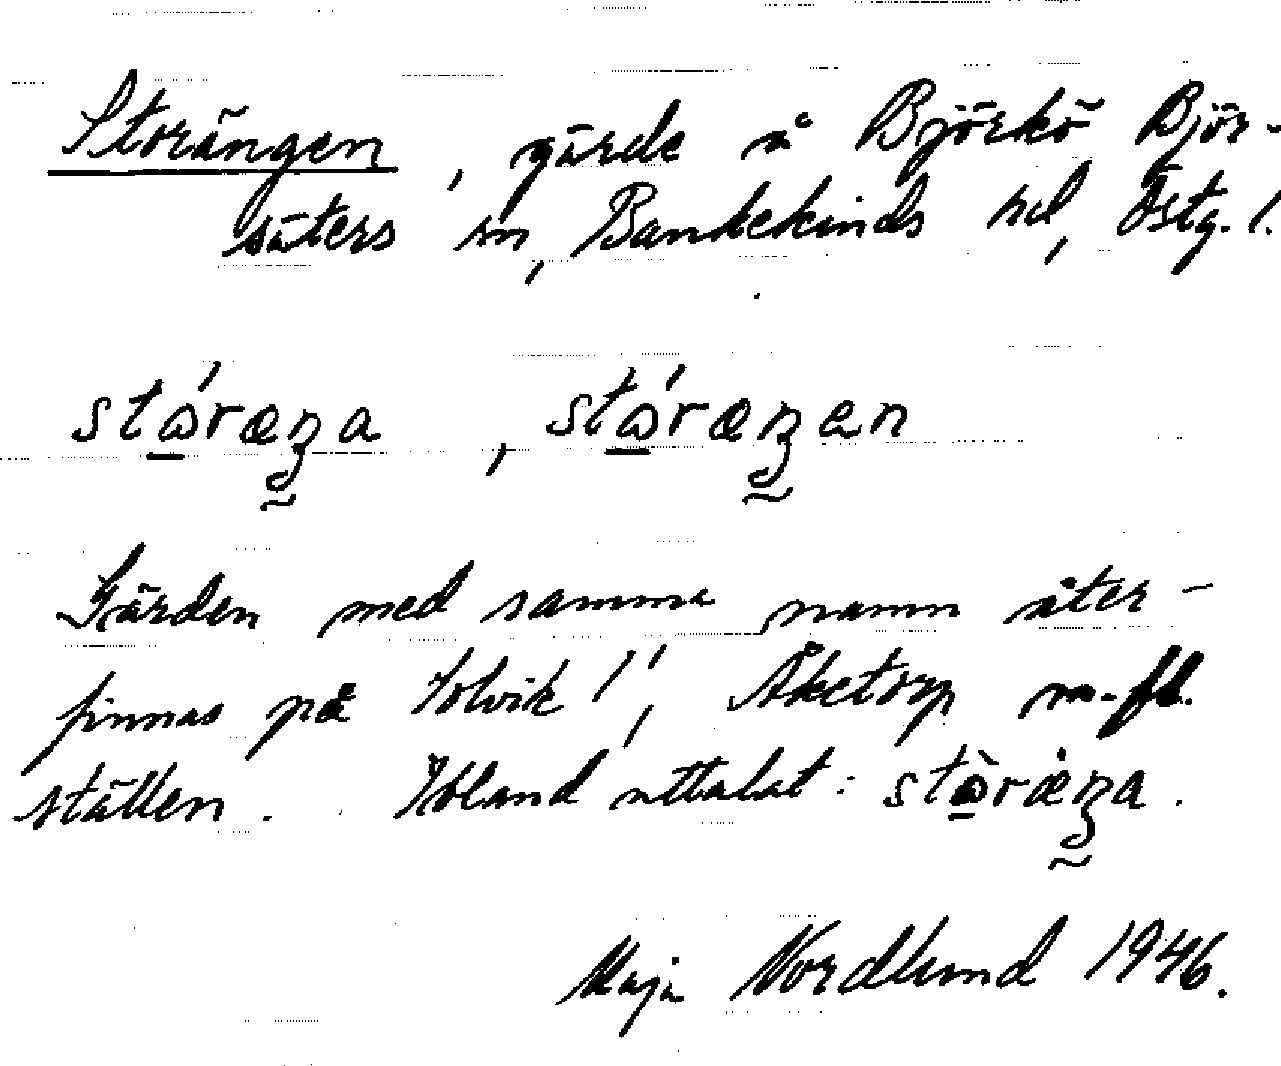 Storängen, gärde å Björkö Björ-
säters sn, Bankekinds hd, Östg. l.
stώræŋa, stώræŋen
Gärden med samma namn åter-
finnas på Solvik 1¹, Åketorp m.fl.
ställen. Ibland uttalat: stὼræ̇ŋa.
Maja Nordlund 1946.